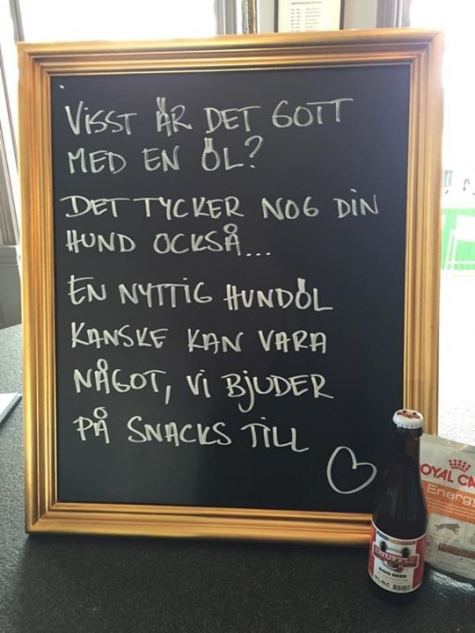 VISST ÄR DET GOTT
MED EN ÖL?
DET TYCKER NOG DIN
HUND OCKSÅ...
EN NYTTIG HUNDÖL
KANSKE KAN VARA
NÅGOT, VI BJUDER
PÅ SNACKS TILL
OYAL CA
Energy
DOG BEER